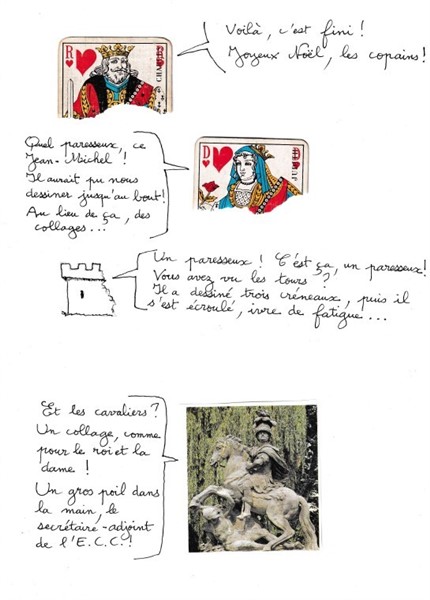 Voilà, c'est fini !
Joyeux Noël, les copains !
R
CHA
Quel paresseux, ce
Jean-Michel !
Il aurait pu nous
dessiner jusqu'au bout !
Au lieu de ça, des
collages...
D
Un paresseux ! C'est ça, un paresseux !
Vous avez vu les tours ?
Il a dessiné trois créneaux, puis il
s'est écroulé, ivre de fatigue...
Et les cavaliers ?
Un collage, comme
pour le roi et la
dame !
Un gros poil dans
la main, le
secrétaire-adjoint
de l'E.C.C. !